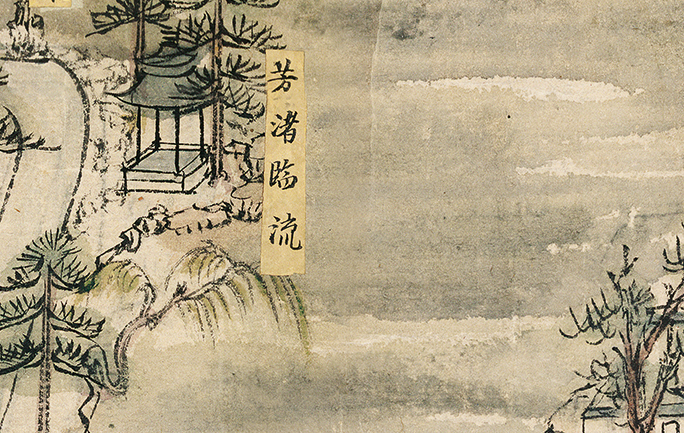 芳渚臨流